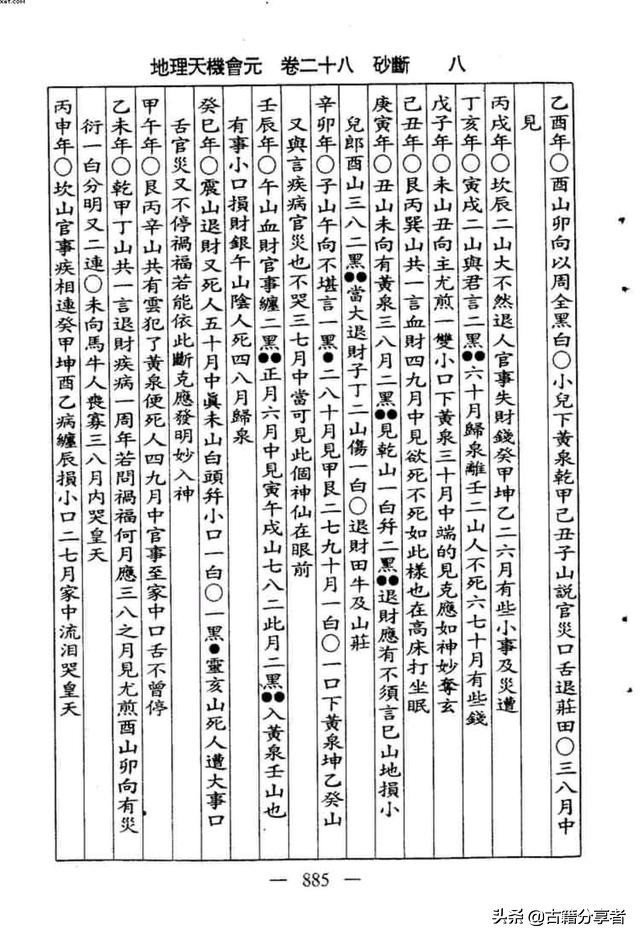 xet.com
地理天機會元　卷二十八　砂斷　八
乙酉年○酉山卯向以周全黑白○小兒下黃泉乾甲己丑子山説官災口舌退莊田○三八月中
見
丙戌年○坎辰二山大不然退人官事失財錢癸甲坤乙二六月有些小事及災遭
丁亥年○寅戌二山與君言二黑●●六十月歸泉離壬二山人不死六七十月有些錢
戊子年○未山丑向主尤煎一雙小口下黃泉三十月中端的見克應如神妙奪玄
己丑年○艮丙巽山共一言血財四九月中見欲死不死如此樣也在高床打坐眠
庚寅年○丑山未向有黃泉三八月二黑●●見乾山一白幷二黑●●退財應有不須言巳山地損小
兒郎酉山三八二黑●●當大退財子丁二山傷一白○退財田牛及山莊
辛卯年○子山午向不堪言一黑●二八十月見甲艮二七九十月一白○一口下黃泉坤乙癸山
又與言疾病官災也不哭三七月中當可見此個神仙在眼前
壬辰年○午山血財官事纏二黑●●正月六月中見寅午戌山七八二此月二黑●●入黃泉壬山也
有事小口損財銀午山陰人死四八月歸泉
癸巳年○震山退財又死人五十月中眞未山白頭幷小口一白○一黑●靈亥山死人遭大事口
舌官災又不停禍福若能依此斷克應發明妙入神
甲午年○艮丙辛山共有雲犯了黃泉便死人四九月中官事至家中口舌不曾停
乙未年○乾甲丁山共一言退財疾病一周年若問禍福何月應三八之月見尤煎酉山卯向有災
衍一白分明又二連○未向馬牛人喪寡三八月内哭皇天
丙申年○坎山官事疾相連癸甲坤酉乙病纏辰損小口二七月家中流泪哭皇天
— 885 —
头条@古籍分享者